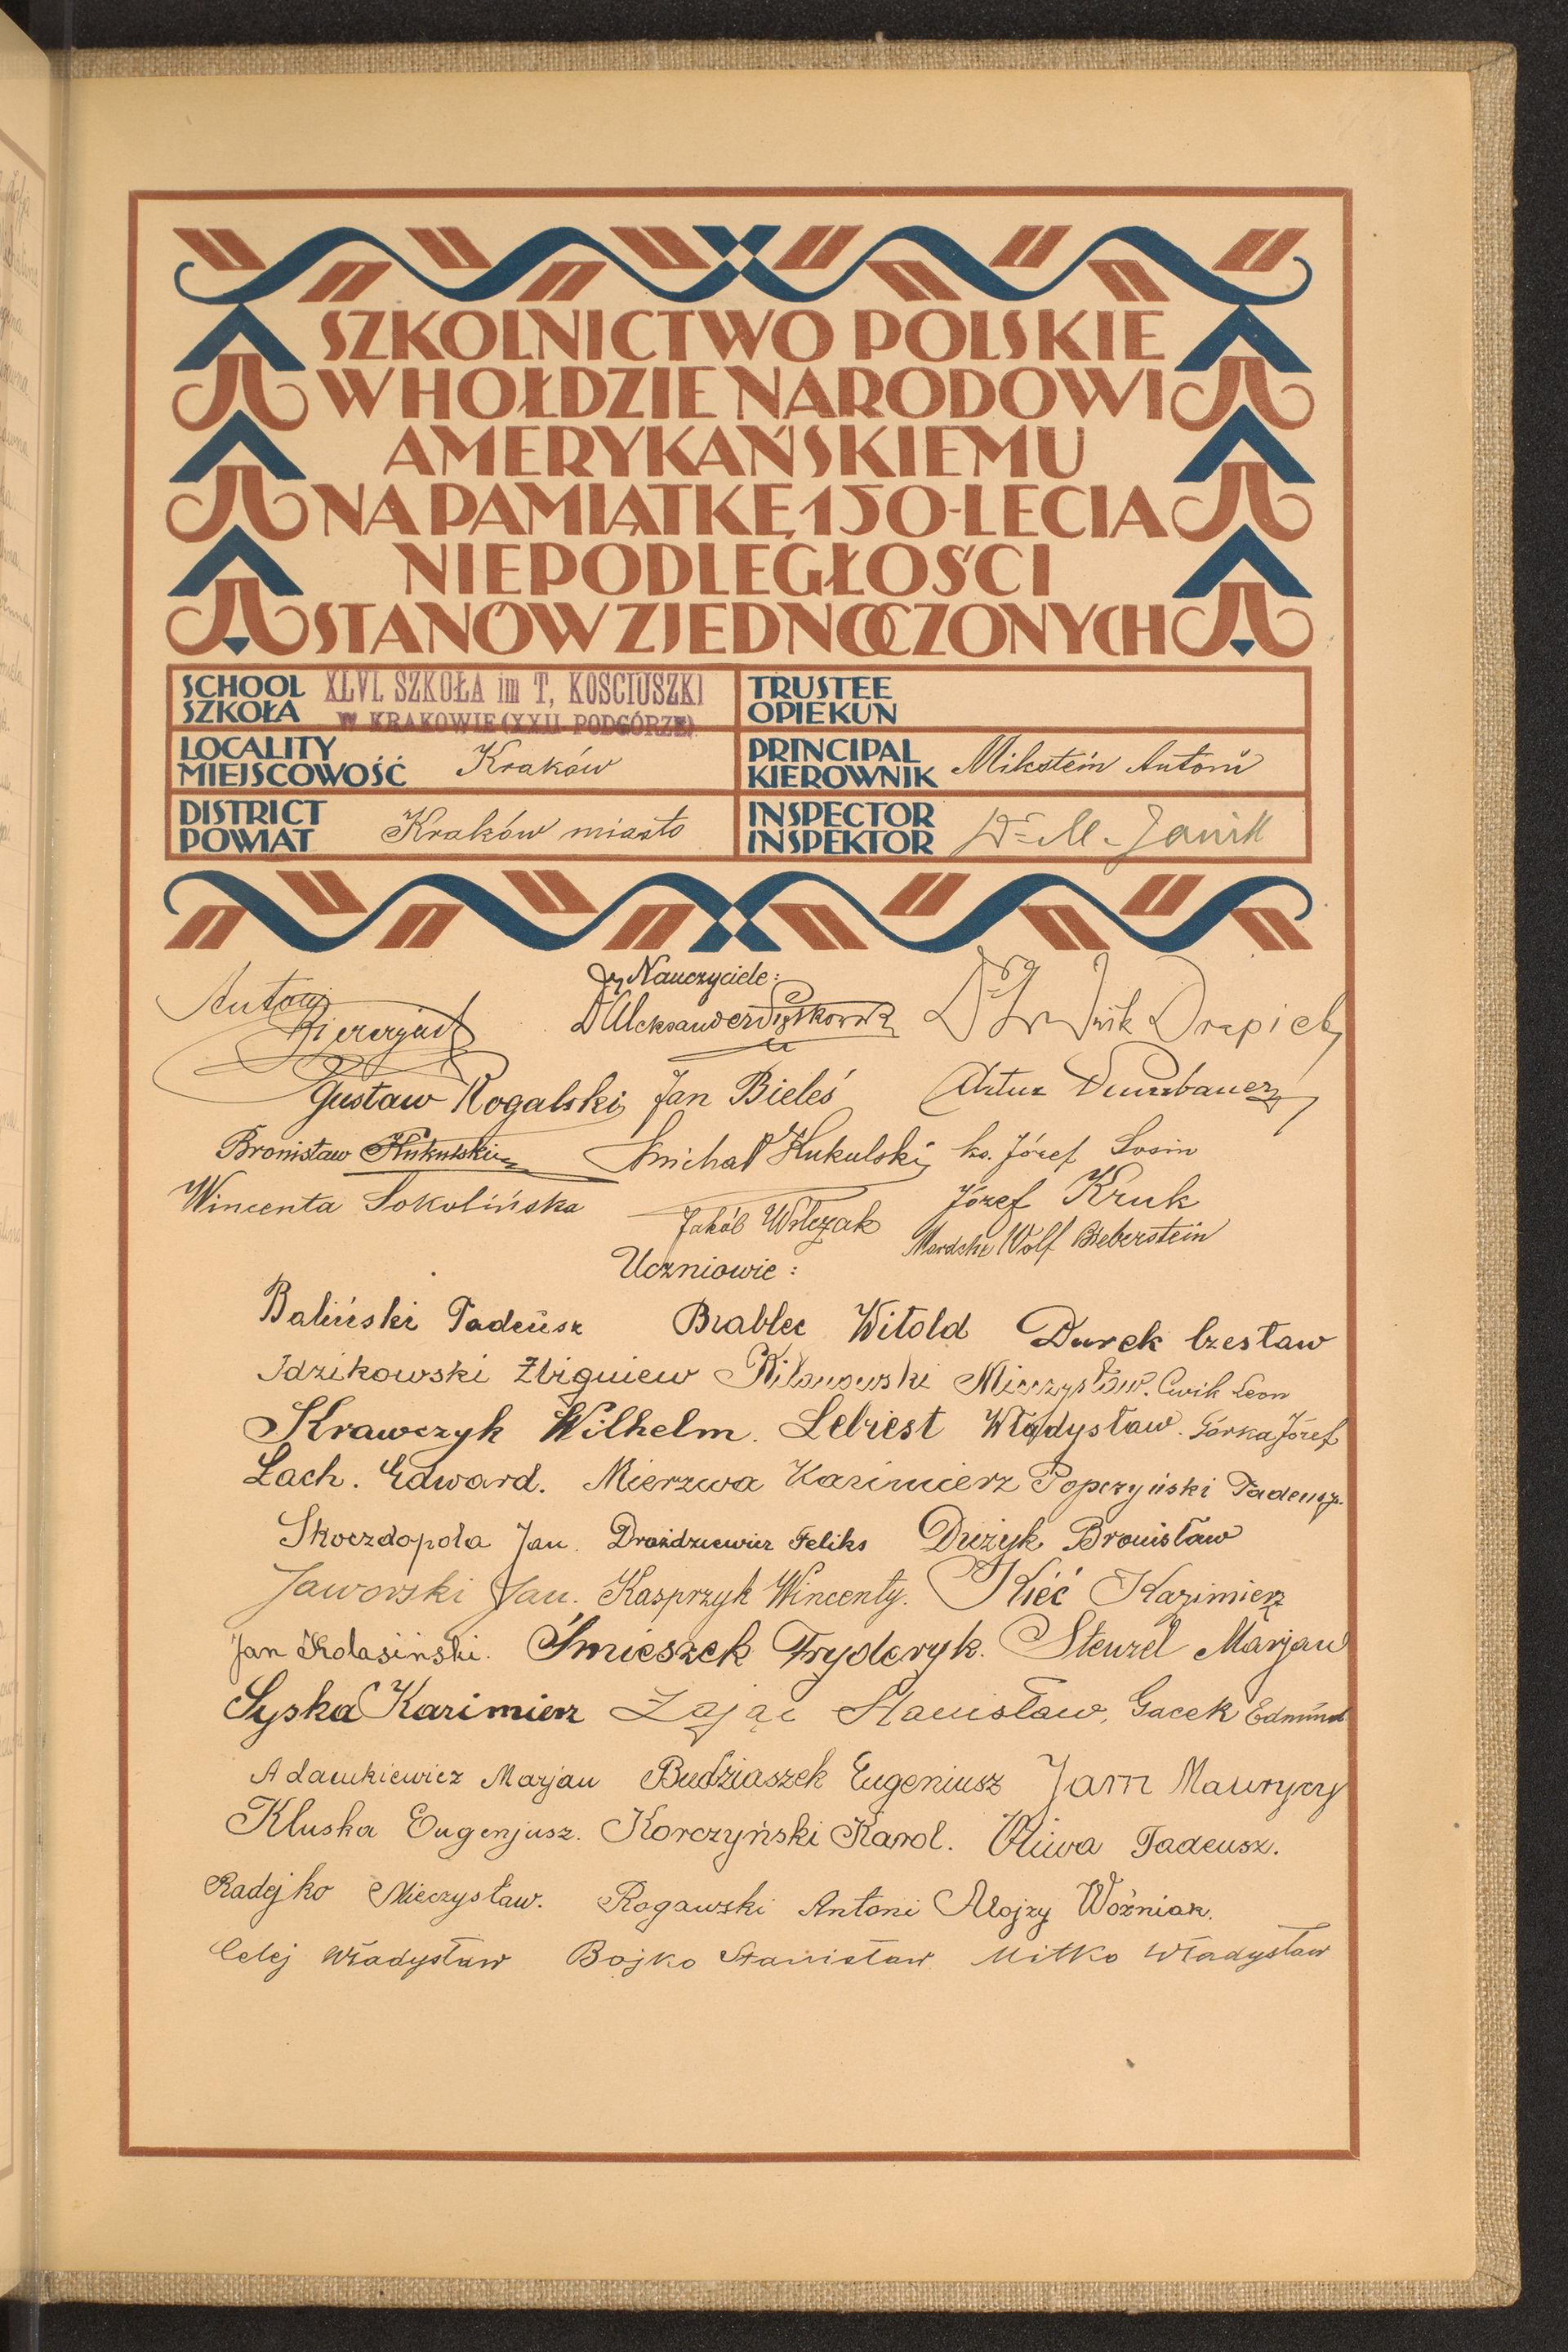 SZKOLNICTWO POLSKIE
W HOŁDZIE NARODOWI
AMERYKAŃSKIEMU
NA PAMIĄTKĘ 150-LECIA
NIEPODLEGŁOŚCI
STANÓW ZJEDNOCZONYCH
SCHOOL SZKOŁA XLVI. SZKOŁA im T. KOSCIUSZKI
W KRAKOWIE (XXII. PODGÓRZE)
TRUSTEE OPIEKUN
LOCALITY MIEJSCOWOŚĆ Kraków
PRINCIPAL KIEROWNIK Mikstein Antoni
DISTRICT POWIAT Kraków miasto
INSPECTOR INSPEKTOR Dr M. Janik
Nauczyciele:
Antoni Dr Aleksander Dr Drapich
Gustaw Rogalski Jan Bieleś Artur
Bronisław Kukulski Michał Kukulski ks. Józef Sosin
Wincenta Sokolińska Jakób Wilczak Józef Kruk
Mordche Wolf Bieberstein
Uczniowie:
Baliński Tadeusz Brablec Witold Durek Czesław
Idzikowski Zbigniew Mieczysław. Ćwik Leon
Krawczyk Wilhelm. Lebiest Władysław. Górka Józef
Lach. Edward. Mierzwa Kazimierz Popczyński Tadeusz.
Skoczdopola Jan. Drożdziewicz Feliks Dużyk Bronisław
Jaworski Jan. Kasprzyk Wincenty. Kieć Kazimierz
Jan Kolasiński. Śmieszek Fryderyk. Stenzel Marjan
Syska Kazimierz Zając Stanisław, Gacek Edmund
Adamkiewicz Marjan Budziaszek Eugeniusz Jam Maurycy
Kluska Eugenjusz. Korczyński Karol. Oliwa Tadeusz.
Radejko Mieczysław. Rogawski Antoni Alojzy Woźniak.
Celej Władysław Bojko Stanisław Mitko Władysław